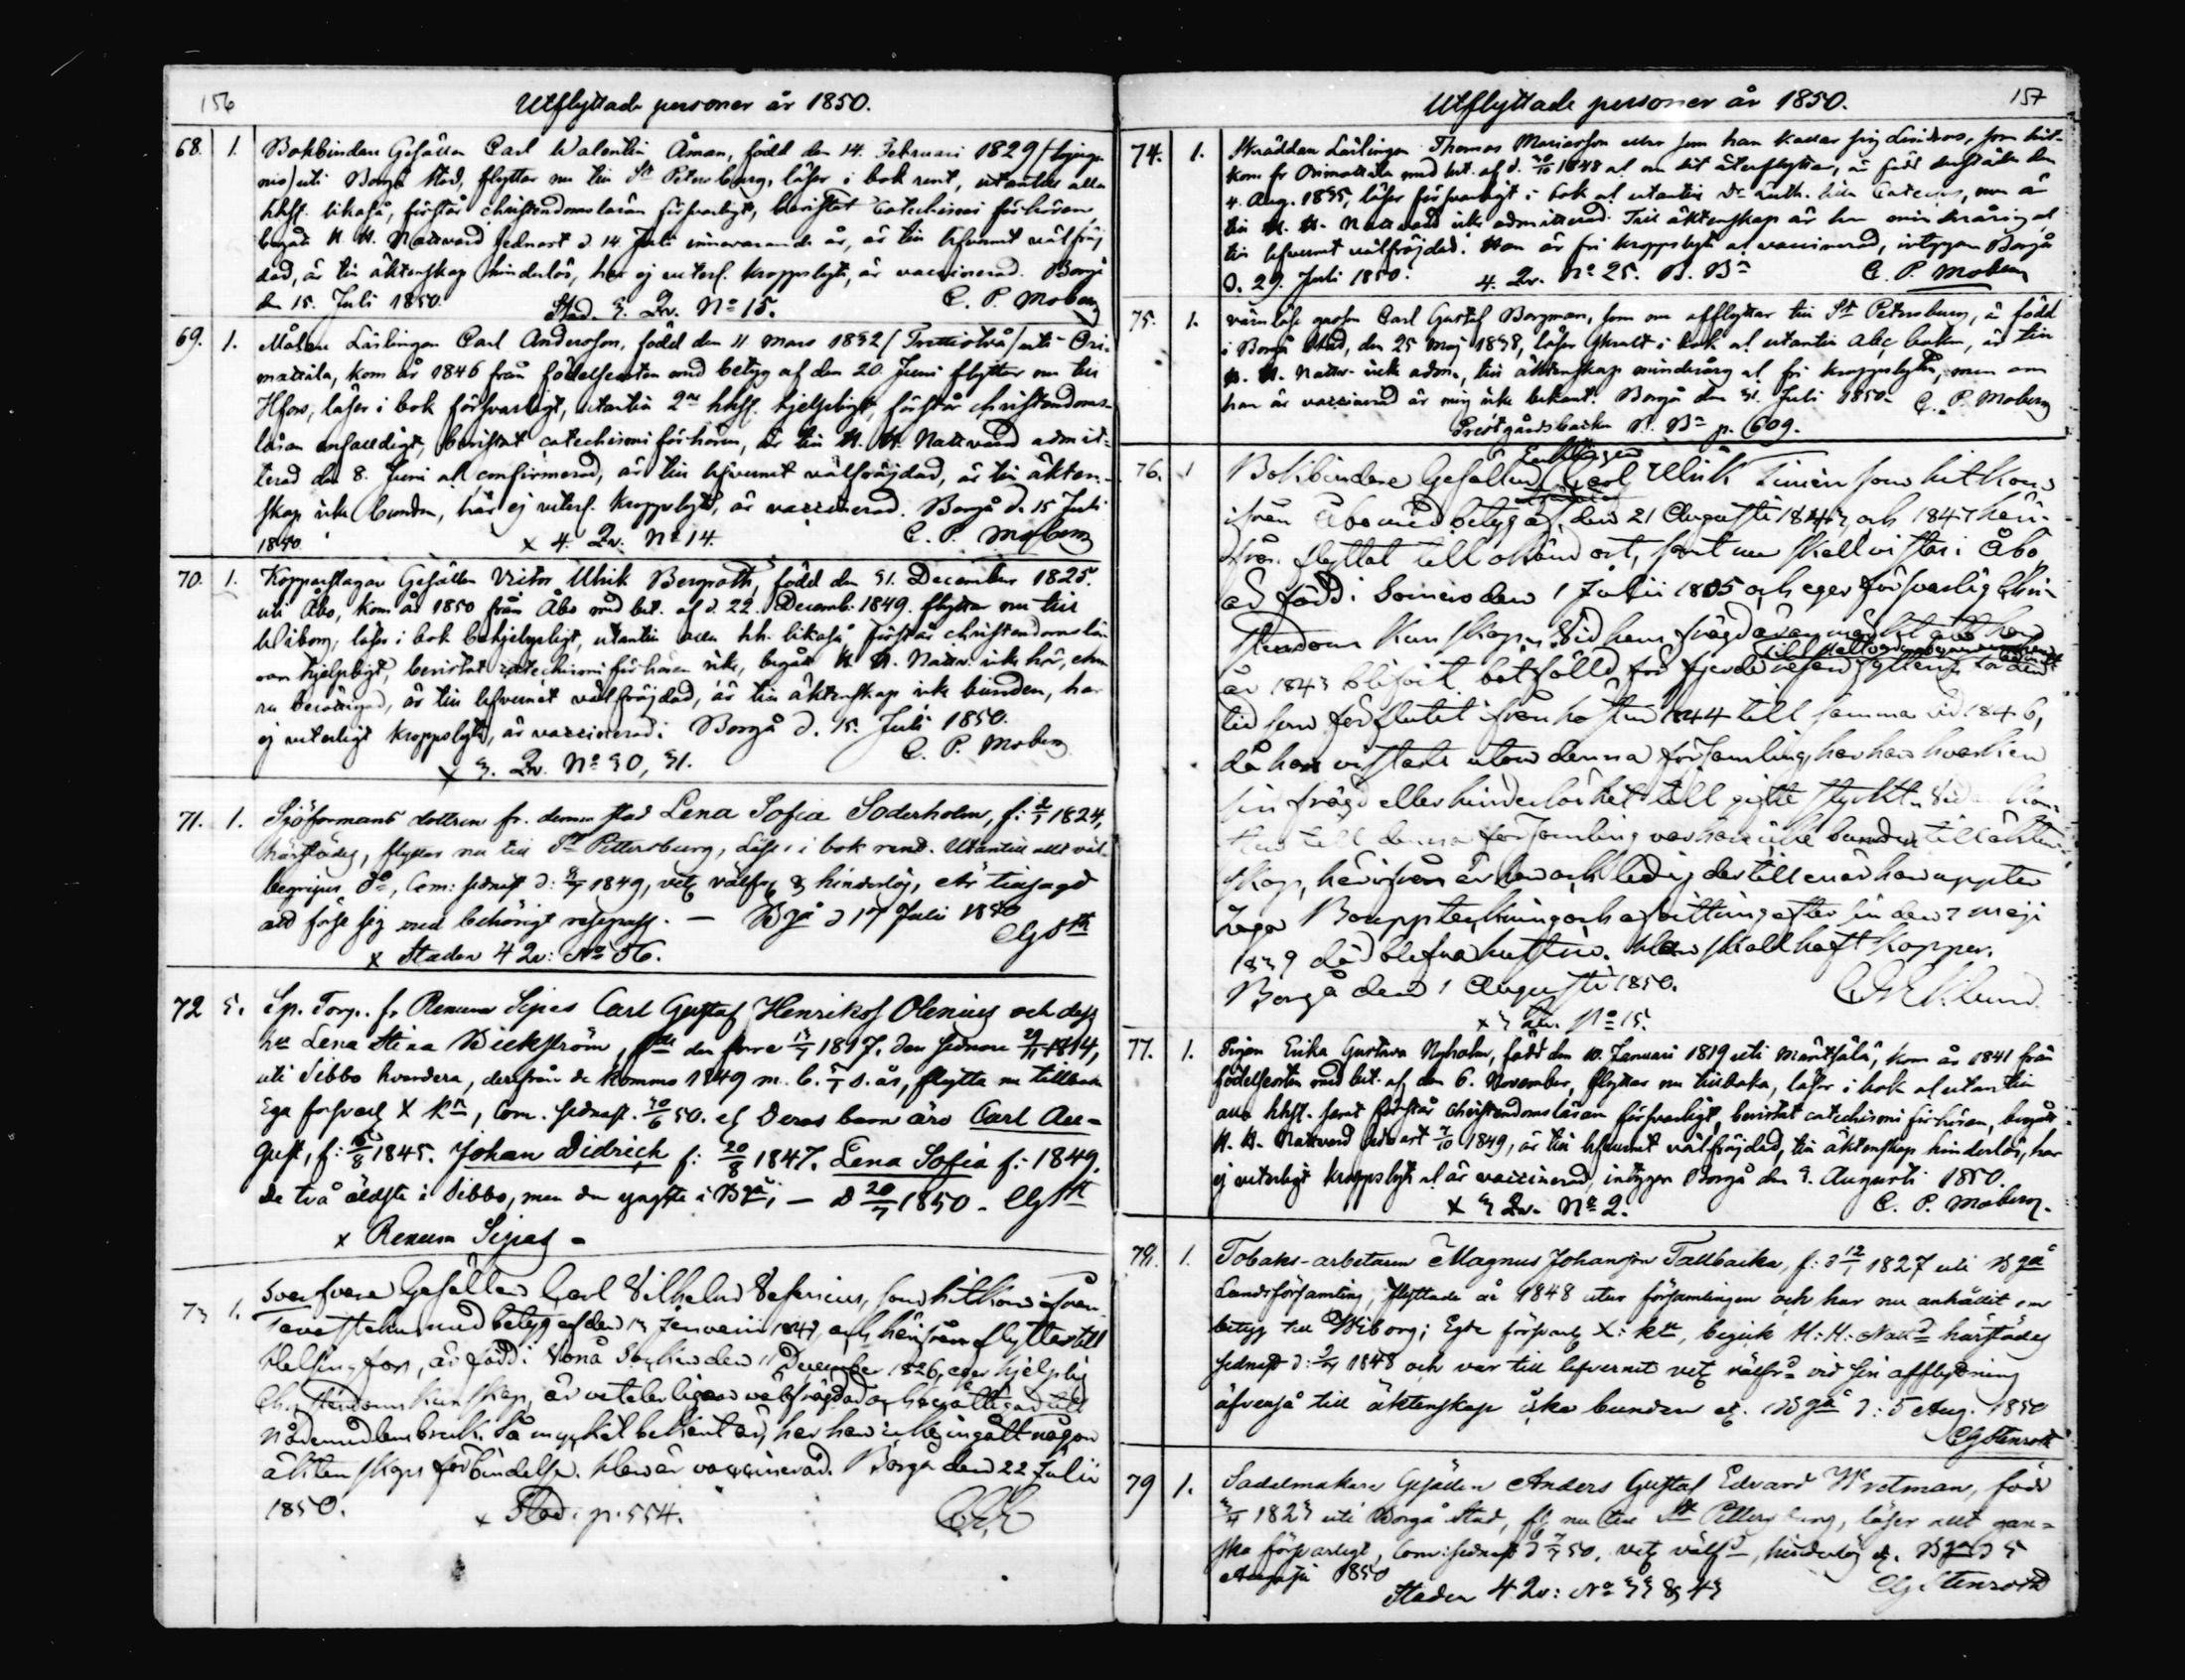 156
Utflyttade personer år 1850.
68. 1. Bokbindare Gesällen Carl Walentin Åman, född den 14. Februari 1829
uti Borgå Stad, flyttar nu till St Petersburg, läser i bok rent, utantill alla
hhst. likaså, förstår christendomsläran försvarligt, bevistat Catechismi förhören,
begått H. H. Nattvard sednast d. 14. Juli innevarande år, är till lefvernet välfräj
dad, är till äktenskap hinderlös, har ej veterl. kroppslyte, är vaccinerad. Borgå
den 15. Juli 1850. Stad. 3. Qv. No 15. C. P. Moberg
69. 1. Målare Lärlingen Carl Andersson, född den 11 Mars 1832 (Trettiotvå) uti Ori-
mattila, kom år 1846 från födelseorten med betyg af den 20. Juni flyttar nu till
Hfors, läser i bok försvarligt, utantill 2ne hhst. hjelpligt, förstår christendoms-
läran enfaldigt, bevistat catechismi förhören, är till H. H. Nattvard admit-
terad den 8. Juni at confirmerad, är till lefvernet välfräjdad, är till äkten-
skap icke bunden, har ej veterl. kroppslyte, är vaccinerad. Borgå d. 15 Juli
1850. x 4. Qv. No 14. C. P. Moberg
70. 1. Kopparslagare Gesällen Victor Ulrik Bergroth, född den 31. December 1825
uti Åbo, kom år 1850 från Åbo med bet. af d. 22. Decemb. 1849. flyttar nu till
Wiborg, läser i bok behjelpligt, utantill alla hh. likaså, förstår christendomslä-
ran hjelpligt, bevistat catechismi förhören icke, begått H. H. Nattv. icke här, ehu
ru berättigad, är till lefvernet välfräjdad, är till äktenskap icke bunden, har
ej veterligt kroppslyte, är vaccinerad. Borgå d. 15. Juli 1850.
x 3. Qv. No 30, 31. C. P. Moberg
71. 1. Sjöformans dottren fr. denna stad Lena Sofia Soderholm, f: 1824,
härstädes, flyttar nu till St Pettersburg, Läser i bok rent. Utantill allt väl
begriper do, Com: sednast d: 1849, vetl välfr & hinderlös, Är tillsagd
att förse sig med behörigt respass. — Bgå d 17 Juli 1850
x Staden 4 Qv: No 56. CGSth
72 5. Sp. Torp. fr Renum Sipas Carl Gustaf Henriks Olenius och dess
hu Lena Stina Wickström, den förre 1817. den sednare 1814,
uti Sibbo hvardera, derifrån de kommo 1849 m. b. s. år, flytta nu tillbaka
Ega försvarl X kn, Com. sednast 50. Deras barn äro Carl Au-
gust, f: 1845. Johan Didrich f: 20/8 1847. Lena Sofia f: 1849.
de två äldste i Sibbo, men den yngste i Bgå, — d 20/7 1850 - CGSth
x Renum Sipas -
73 1. Svarfvare Gesällen Carl Vilhelm Seserius, som hitkom ifrån
Tavastehus med betyg af den 13 Januarii 1847, och härifrån flyttar till
Helsingfors, är född i Vånå Socken den 11 December 1826, eger hjelplig
Christendoms kunskap, är veterligen välfräjdad och berättigad till
nådemedlens bruk. Så mycket bekant är, har han icke ingått någon
äktenskaps förbindelse. Han är vaccinerad. Borgå den 22 Julii
1850. x Stad. p. 554.
157
Utflyttade personer år 1850.
74. 1. Skräddare Lärlingen Thomas Mariasson eller som han kallar sig Lindroos, som hit
kom fr Orimattila med bet. af d. 1848 at nu dit återflyttar, är född derstädes den
4. Aug. 1835, läser försvarligt i bok at utantill Cateches, men är
till H. H. Nattvard icke admitterad. Till äktenskap är han minderårig at
till lefvernet välfräjdad. Han är fri kroppslyte at vaccinerad, intygar Borgå
d. 29. Juli 1850. 4. Qv. No 25. C. P. Moberg
75. 1. värnlöse gossen Carl Gustaf Borgman, som nu afflyttar till St Petersburg, är född
i Borgå Stad, den 25 Maj 1838, läser i bok at utantill abc boken, är till
H. H. Nattv. icke adm., till äktenskap minderårig at fri kroppslyte, men om
han är vaccinerad är mig icke bekant. Borgå den 31. Juli 1850. C. P. Moberg
Prestgårdsbacken p. 609.
76. 1 Bokbindare Gesällen Enklingen Carl Ulrik Limén som hitkom
ifrån Åbo med betyg af den 21 Augusti 1843, och 1847 häri-
från flyttat till okänd ort, samt nu skall vistas i Åbo,
är född i Somero den 1 Julii 1805 och eger försvarlig Chri-
stendoms Kunskap. Vid hans frägd är anmärkt att han
år 1843 blifvit botfälld för fjerde resan fylleri. För den
tid som förflutit ifrån hösten 1844 till samma tid 1846,
då han vistats utom denna församling har han hvarken
sin frägd eller hinderlöshet till gifte styrkt. Vid an kom-
sten till denna församling var han icke bunden till äkten-
skap, härifrån är han och ledig dertill när han uppter
laga Bouppteckning och afvittring efter sin den 7 Maji
1839 död blefna hustru. Han skall haft koppor.
Borgå den 1 Augusti 1850.
x 3 Qv. No 15.
77. 1. Pigan Erika Gustava Nyholm, född den 10. Januari 1819 uti Mäntsälä, kom år 1841 från
födelseorten med bet. af den 6. November, flyttar nu tillbaka, läser i bok at utantill
alla hhst. samt förstår Christendomsläran försvarligt, bevistat catechismi förhören, begått
H. H. Nattvard sednast 7/10 1849, är till lefvernet välfräjdad, till äktenskap hinderlös, har
ej veterligt kroppslyte at är vaccinerad, intygar Borgå den 3. Augusti 1850.
x 3 Qv. No 2. C. P. Moberg.
78. 1. Tobaks-arbetaren Magnus Johansson Tallbacka, f: d 12/1 1827 uti Bgå
Landsförsamling, flyttade år 1848 utur församlingen och har nu anhållit om
betyg till Wiborg; Egde försvarl X: kn, begick H: H: Nattvd härstädes
sednast d: 1848 och var till lefvernet vetl välfrd vid sin afflyttning
äfvenså till äktenskap icke bunden Bgå d: 5 Aug. 1850
CGStenroth
79 1. Sadelmakare Gesällen Anders Gustaf Edvard Wretman, född
1823 uti Borgå Stad, fl nu till St Pettersburg, läser allt gan-
ska försvarligt, Com: sednast d 50, vetl välfd, hinderlös Bgå d 5
Augusti 1850
Staden 4 Qv: No 33 & 43 CGStenroth